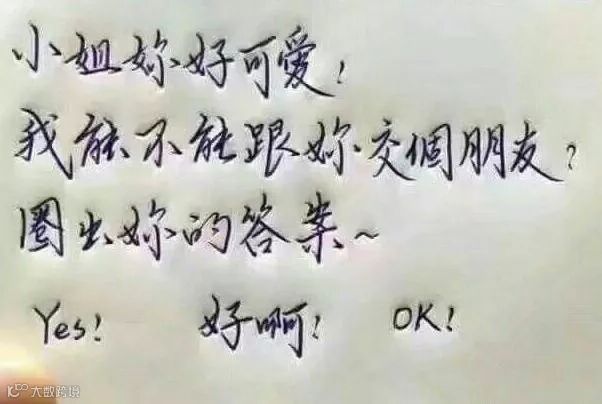 小姐妳好可愛!
我能不能跟妳交個朋友?
圈出妳的答案~
Yes! 好啊! OK!
大数跨境